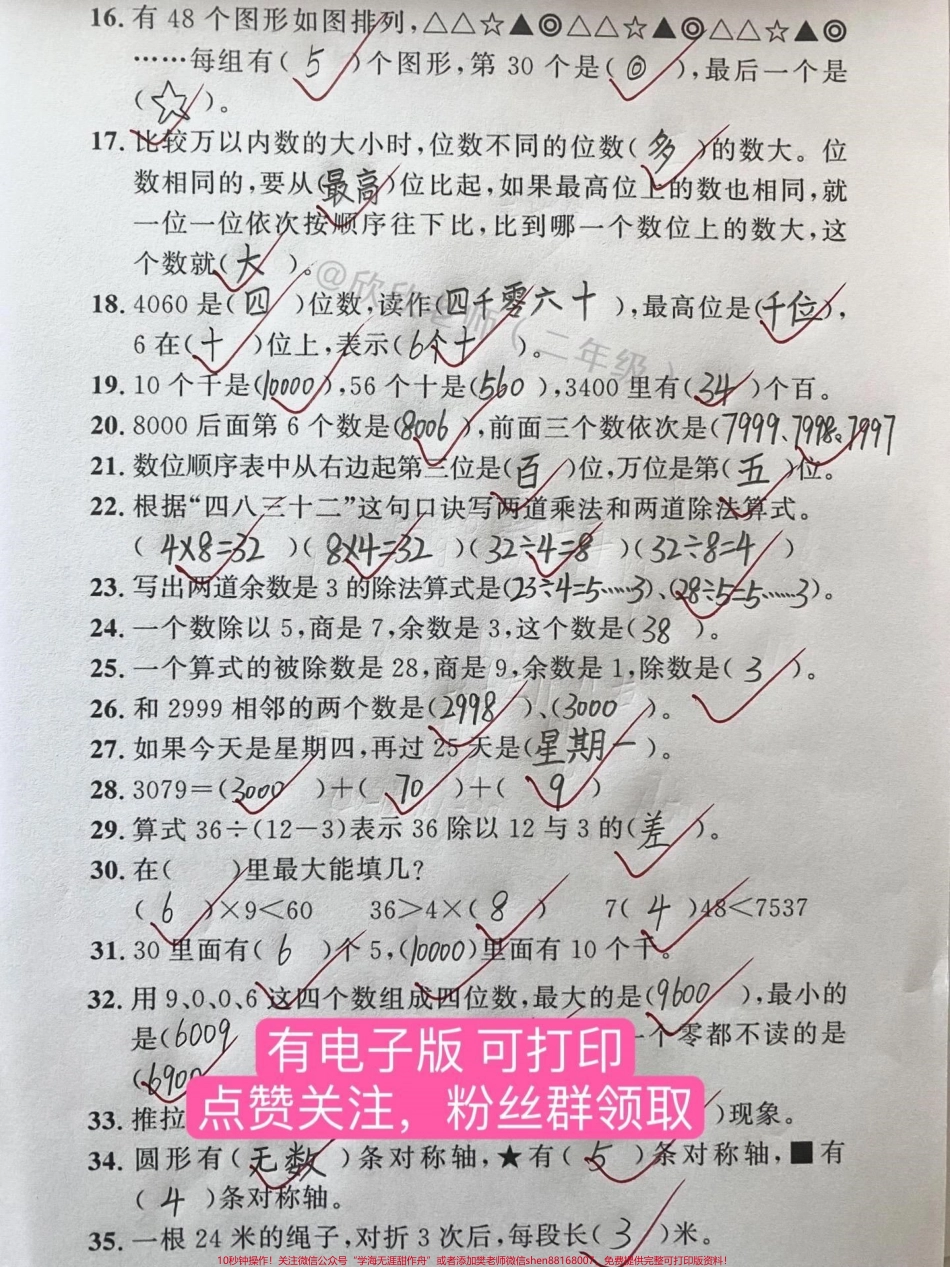 16. 有 48 个图形如图排列,△△☆▲◎△△☆▲◎△△☆▲◎
……每组有( 5 )个图形,第 30 个是( ◎ ),最后一个是
( ☆ )。
17. 比较万以内数的大小时,位数不同的位数( 多 )的数大。位
数相同的,要从(最高)位比起,如果最高位上的数也相同,就
一位一位依次按顺序往下比,比到哪一个数位上的数大,这
个数就( 大 )。
@欣欣老师(二年级)
18. 4060 是( 四 )位数,读作(四千零六十),最高位是(千位),
6 在( 十 )位上,表示( 6个十 )。
19. 10 个千是(10000),56 个十是(560),3400 里有( 34 )个百。
20. 8000 后面第 6 个数是(8006),前面三个数依次是(7999、7998、7997
21. 数位顺序表中从右边起第三位是( 百 )位,万位是第( 五 )位。
22. 根据“四八三十二”这句口诀写两道乘法和两道除法算式。
( 4×8=32 )( 8×4=32 )( 32÷4=8 )( 32÷8=4 )
23. 写出两道余数是 3 的除法算式是(23÷4=5……3)、(28÷5=5……3)。
24. 一个数除以 5,商是 7,余数是 3,这个数是( 38 )。
25. 一个算式的被除数是 28,商是 9,余数是 1,除数是( 3 )。
26. 和 2999 相邻的两个数是(2998)、(3000)。
27. 如果今天是星期四,再过 25 天是(星期一)。
28. 3079=(3000)+( 70 )+( 9 )
29. 算式 36÷(12-3)表示 36 除以 12 与 3 的( 差 )。
30. 在( )里最大能填几?
( 6 )×9<60 36>4×( 8 ) 7( 4 )48<7537
31. 30 里面有( 6 )个 5,(10000)里面有 10 个千。
32. 用 9、0、0、6 这四个数组成四位数,最大的是(9600),最小的
是(6009 一个零都不读的是
(6900
33. 推拉 )现象。
有电子版 可打印
点赞关注，粉丝群领取
34. 圆形有( 无数 )条对称轴,★有( 5 )条对称轴,■有
( 4 )条对称轴。
35. 一根 24 米的绳子,对折 3 次后,每段长( 3 )米。
10秒钟操作！关注微信公众号“学海无涯甜作舟”或者添加樊老师微信shen88168007，免费提供完整可打印版资料！